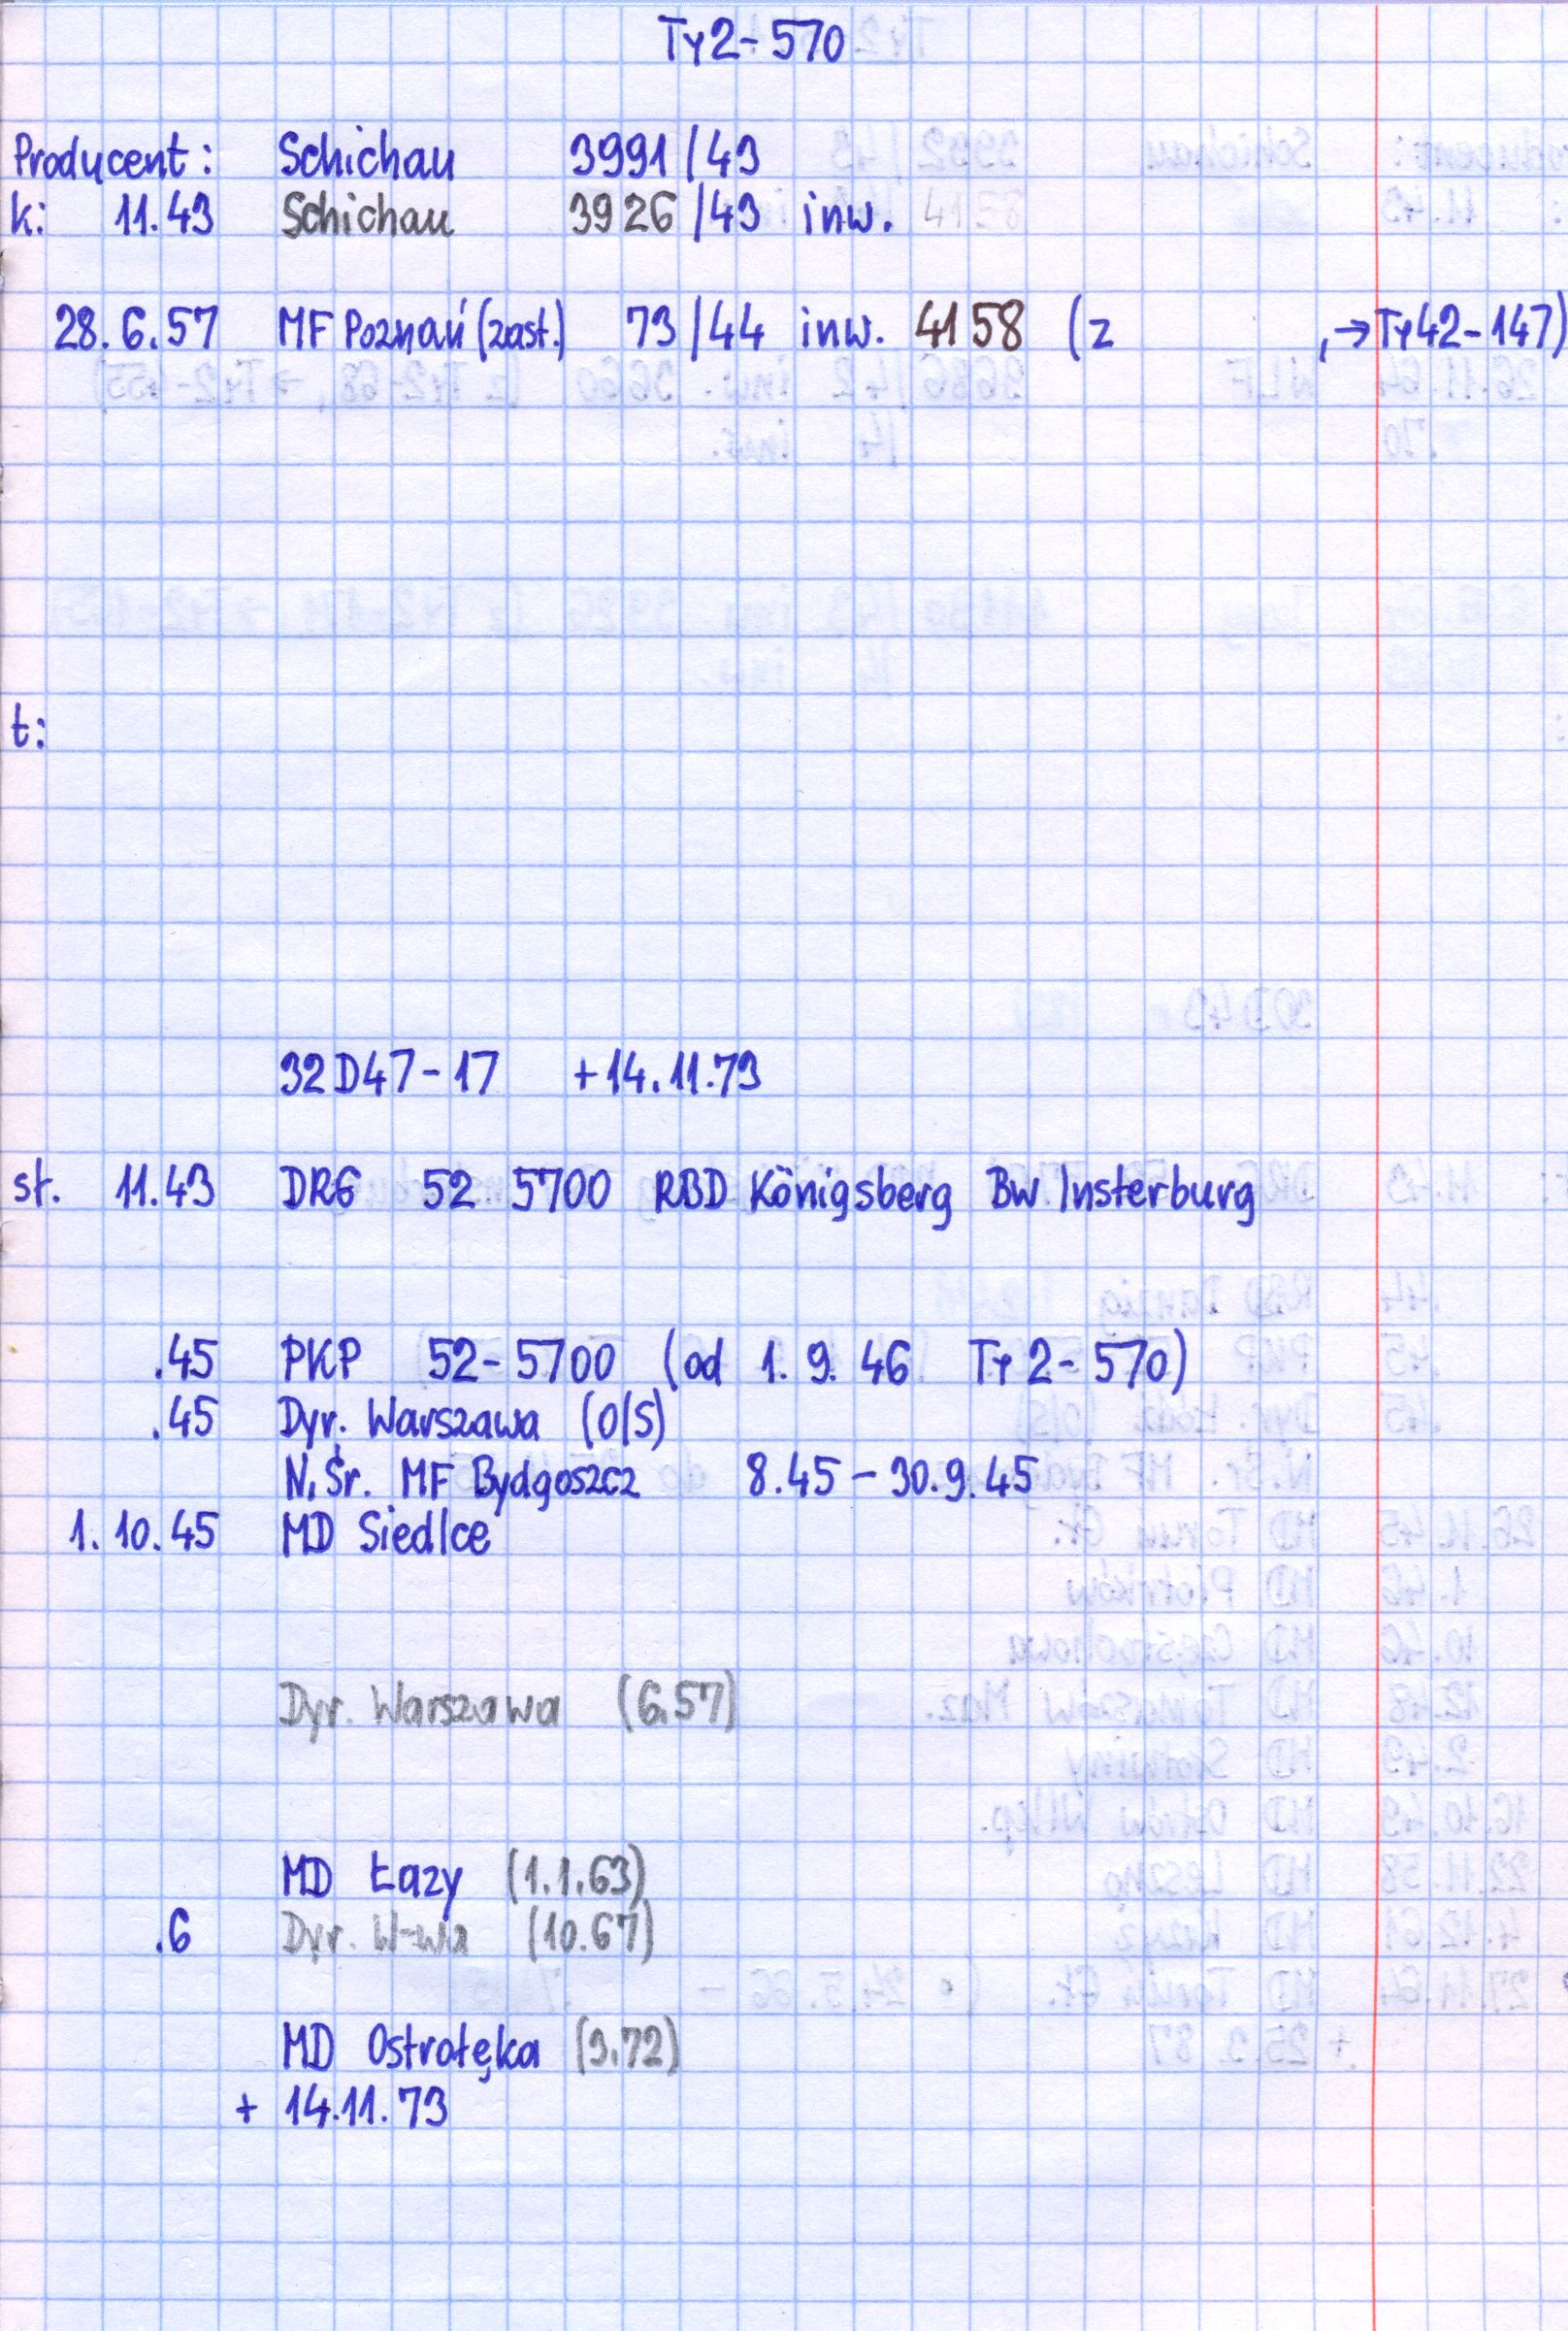 Ty2-570
Producent: Schichau 3991/43
k: 11.43 Schichau 3926/43 inw.
28.6.57 MF Poznań (zast.) 73/44 inw. 4158 (z , →Ty42-147)
t:
32D47-17 +14.11.73
st. 11.43 DRG 52 5700 RBD Königsberg Bw Insterburg
.45 PKP 52-5700 (od 1.9.46 Ty2-570)
.45 Dyr. Warszawa (O/S)
N.Śr. MF Bydgoszcz 8.45-30.9.45
1.10.45 MD Siedlce
Dyr. Warszawa (6.57)
MD Łazy (1.1.63)
.6 Dyr. W-wa (10.67)
MD Ostrołęka (3.72)
+ 14.11.73